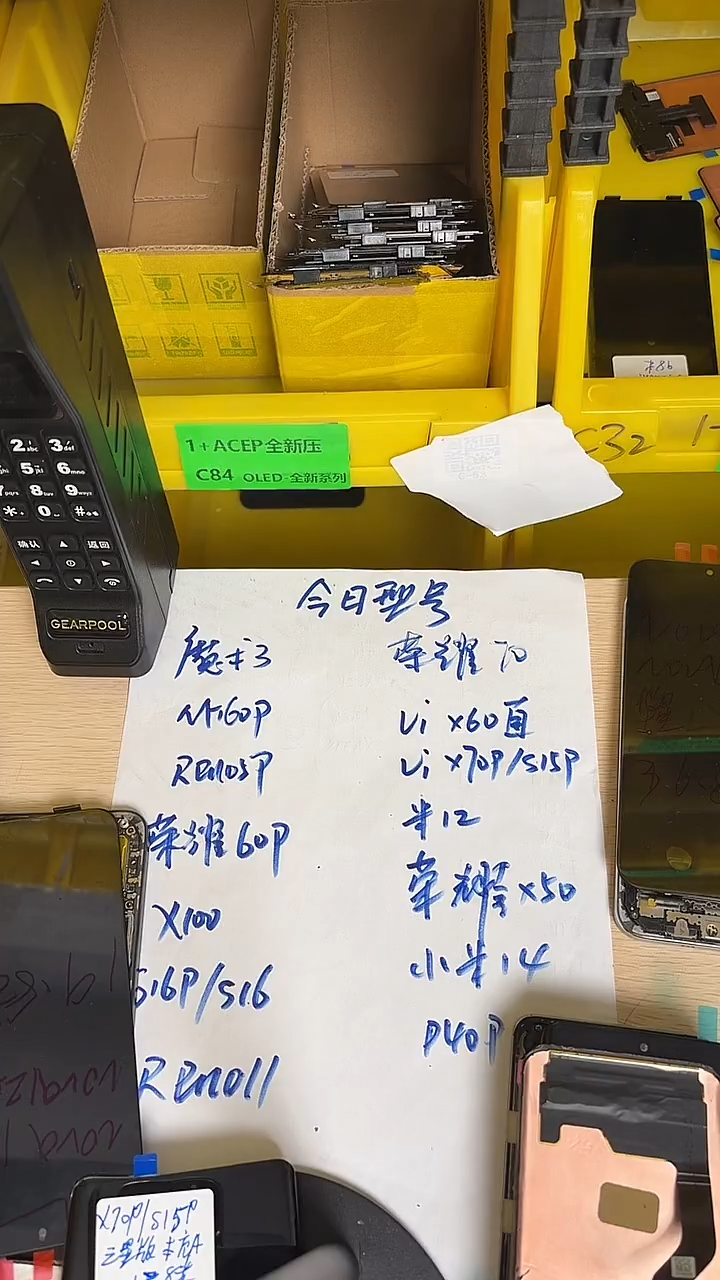 米86
C32
1+ACEP全新压
C84 OLED-全新系列
2abc 3def
5jkl 6mno
7pqrs 8tuv 9wxyz
*. 0 #
确认 返回
GEARPOOL
今日型号
魔术3
荣耀70
Vi x60直
RENO5P
Vi x70P/S15P
荣耀60P
米12
X100
荣耀X50
S16P/S16
小米14
P40P
RENO11
X70P/S15P